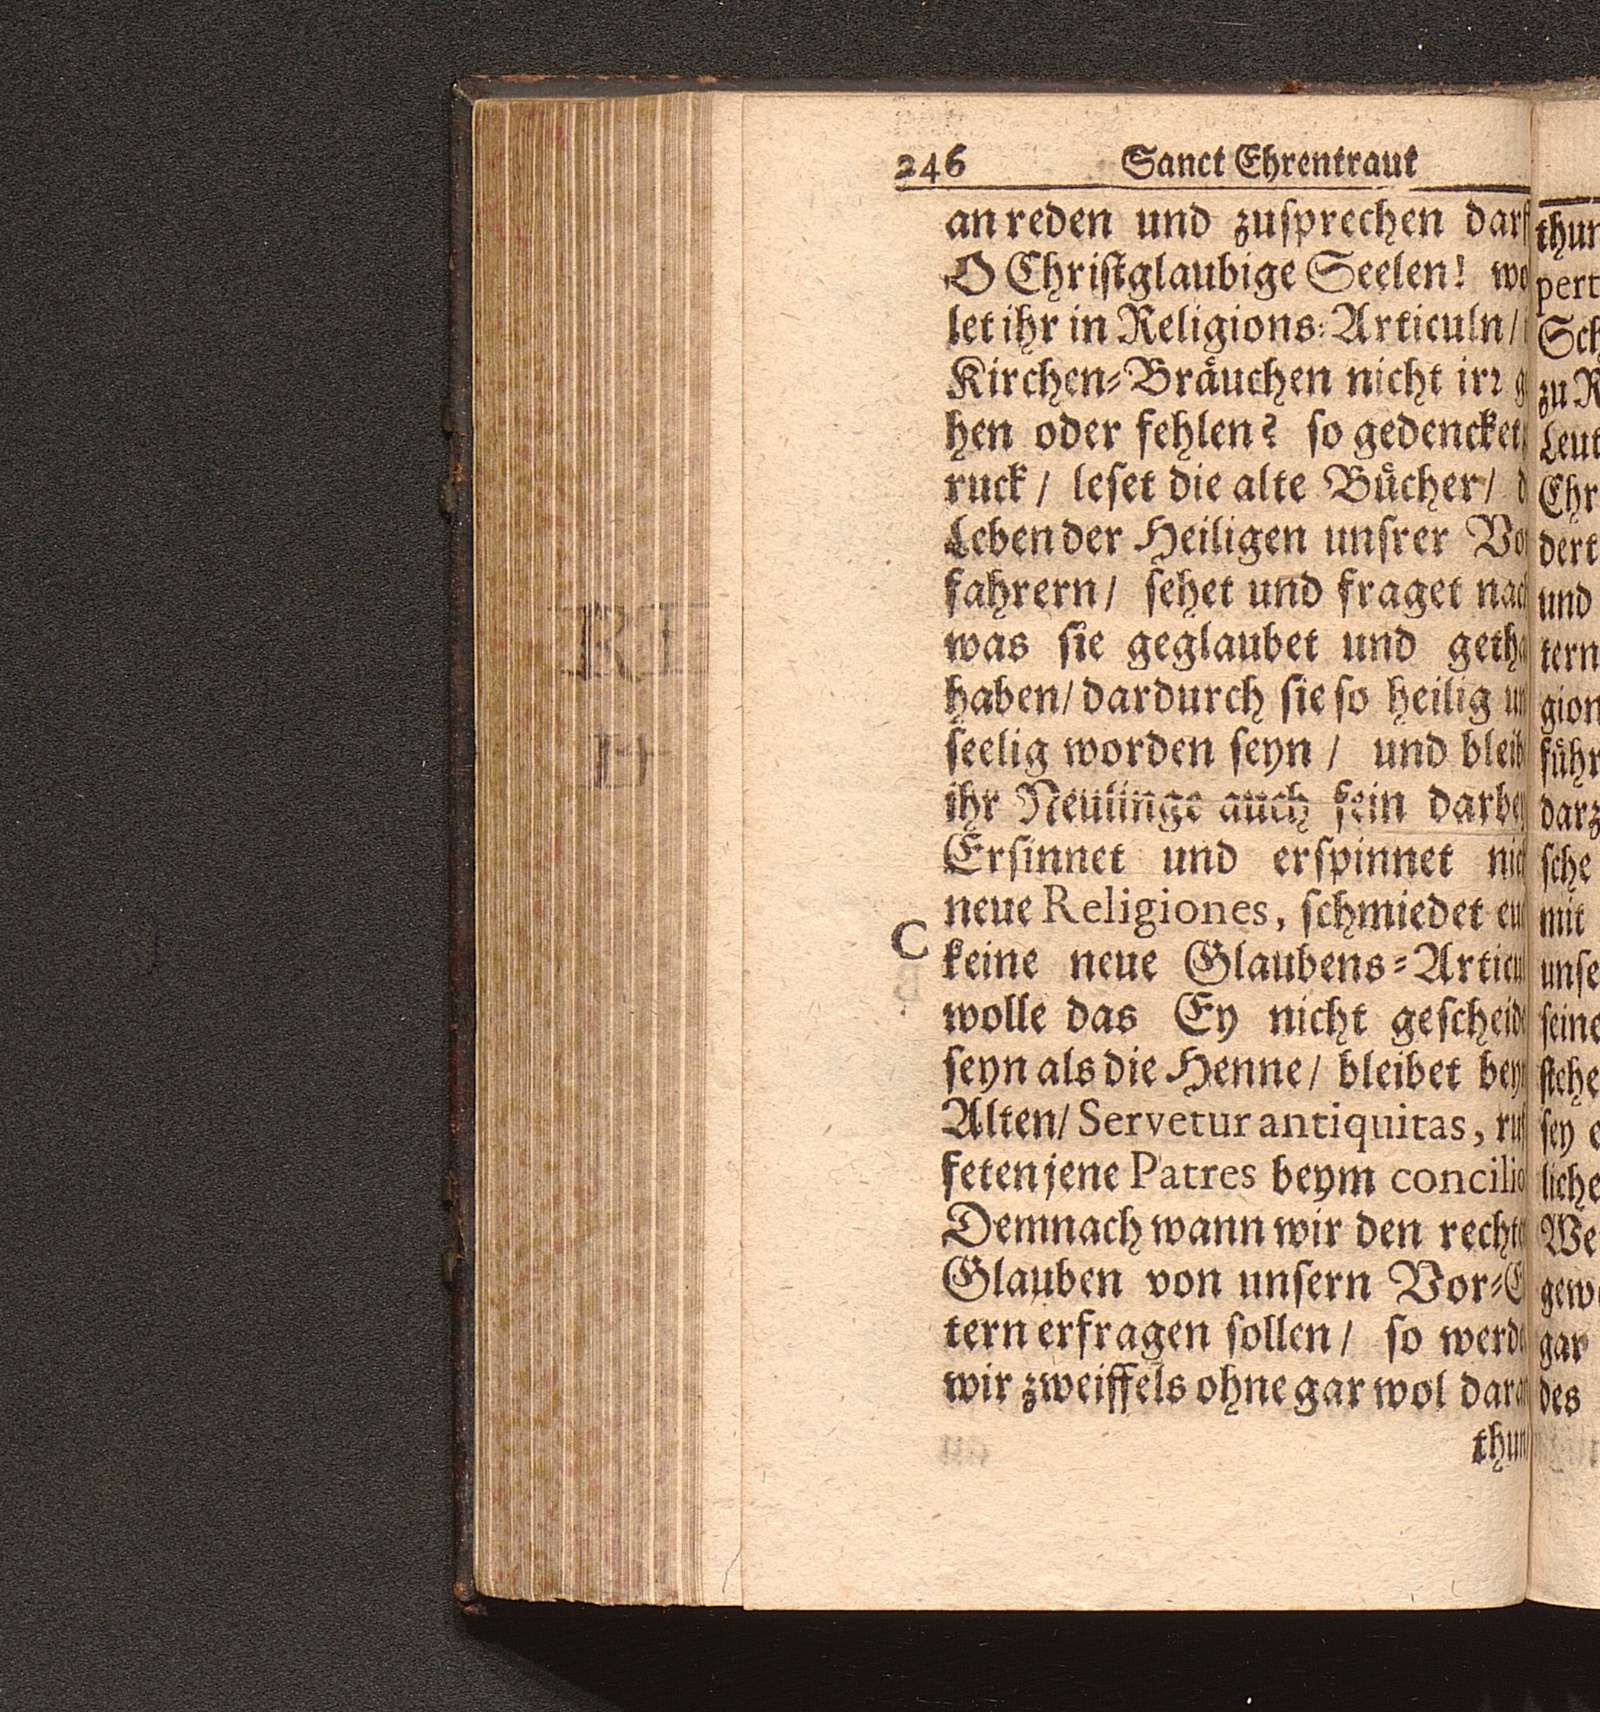 246 Sanct Ehrentraut
an reden und zusprechen darf
O Christglaubige Seelen! wo
let ihr in Religions-Articuln/
Kirchen-Bräuchen nicht irr g
hen oder fehlen? so gedencket
ruck/ leset die alte Bücher/ d
Leben der Heiligen unsrer Vor
fahrern/ sehet und fraget nach
was sie geglaubet und getha
haben/ dardurch sie so heilig un
seelig worden seyn/ und bleib
ihr Neulinge auch fein darbey
Ersinnet und erspinnet nich
neue Religiones, schmiedet euc
C
keine neue Glaubens-Articul
wolle das Ey nicht gescheide
seyn als die Henne/ bleibet beym
Alten/ Servetur antiquitas, ruf
feten jene Patres beym concilio
Demnach wann wir den rechte
Glauben von unsern Vor-E
tern erfragen sollen/ so werde
wir zweiffels ohne gar wol daran
thun
thun
pert
Sch
zu R
Leut
Ehr
dert
und
tern
gion
führ
darz
sche
mit
unse
seine
stehe
sey e
liche
We
gewo
gar
des